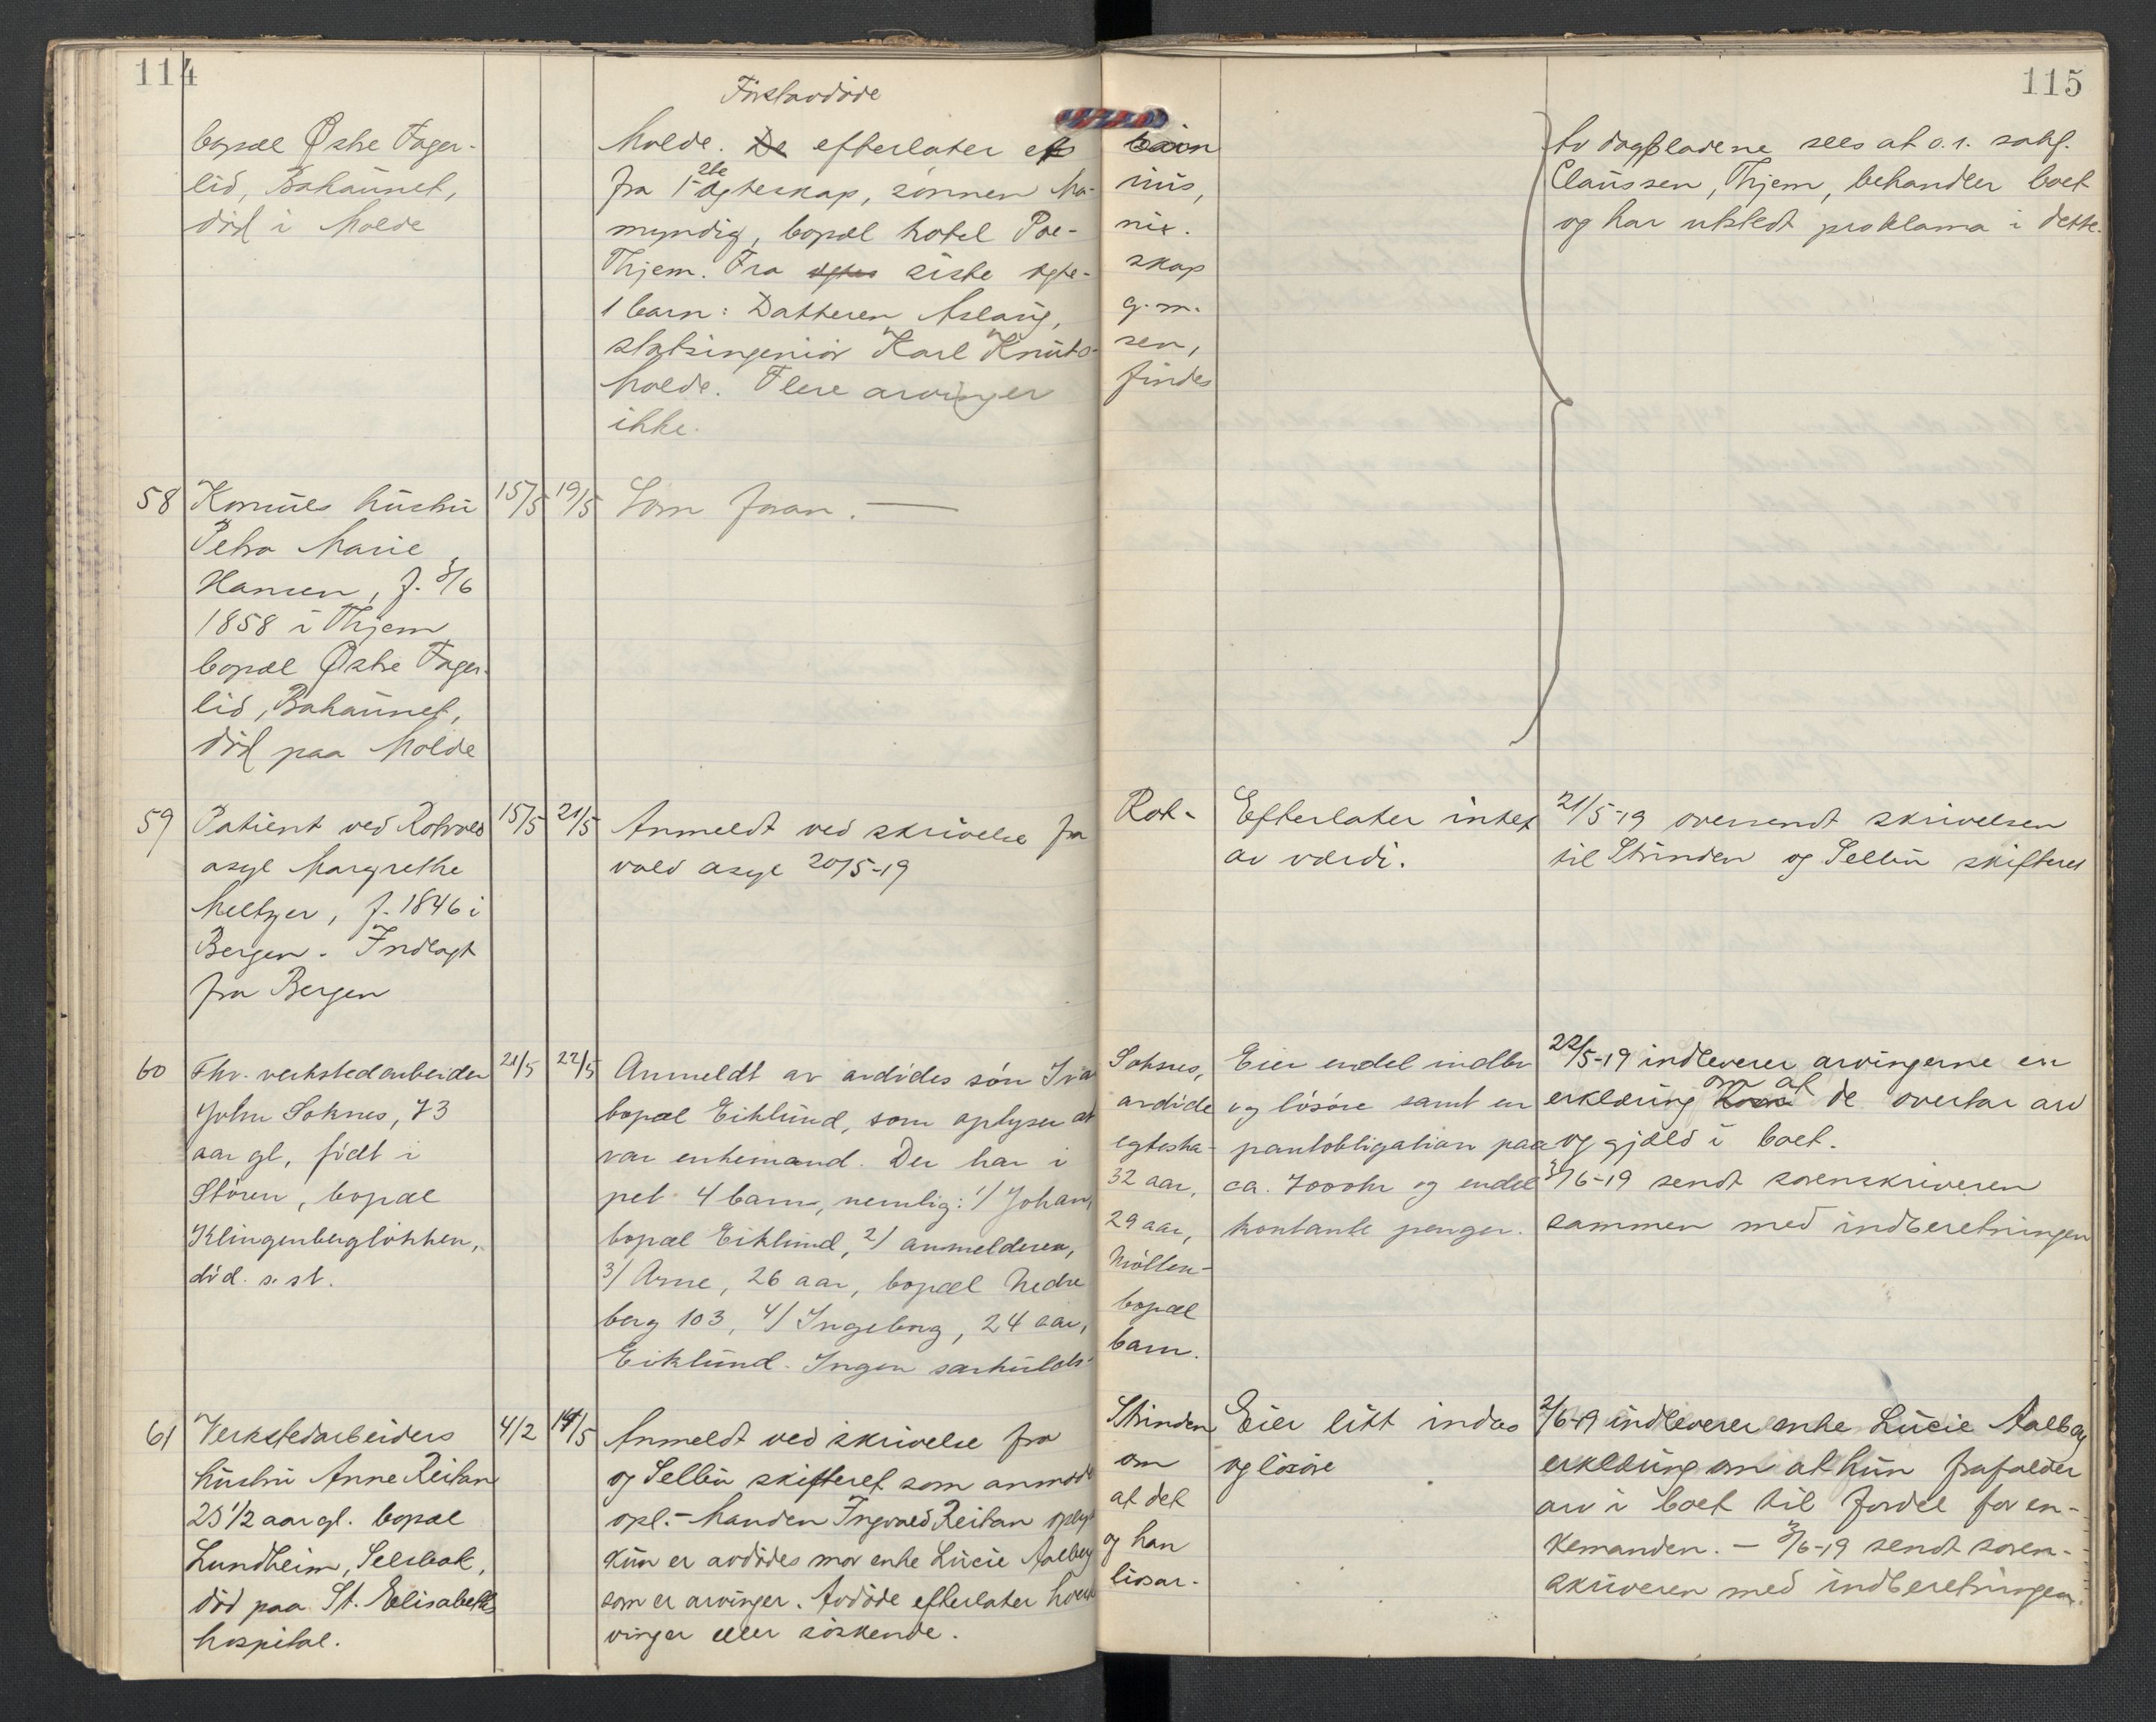 114
115
Førstavdøde
bopæl Østre Fager-
lid, Bakaunet,
død i Molde
Molde. De efterlater et barn
fra 1ste ægteskap, sønnen Ma- nus,
myndig, bopæl hotel Phø- nix.
Thjem. Fra siste ægte- skap
1 barn: Datteren Aslaug, g.m.
statsingeniør Karl Knuts- sen,
Molde. Flere arvinger findes
ikke.
Av dagbladene sees at o.r. sakf.
Claussen, Thjem, behandler boet
og har utstedt proklama i dette.
58 Konsuls hustru 15/5 19/5 Som foran. —
Petra Marie
Hansen, f. 3/6
1858 i Thjem
bopæl Østre Fager-
lid, Bakaunet,
død paa Molde
59 Patient ved Rotvold 15/5 21/5 Anmeldt ved skrivelse fra Rot- Efterlater intet 21/5-19 oversendt skrivelsen
asyl Margrethe vold asyl 20/5-19 av værdi. til Strinden og Selbu skifteret
Meltzer, f. 1846 i
Bergen. Indlagt
fra Bergen
60 Fhv. verkstedarbeider 21/5 22/5 Anmeldt av avdødes søn Ivar Soknes, Eier endel indbo 22/5-19 indleverer arvingerne en
John Soknes, 73 bopæl Eiklund, som oplyser at avdøde og løsøre samt en erklæring om at de overtar arv
aar gl, født i var enkemand. Der har i egteska- pantobligation paa og gjæld i boet.
Støren, bopæl pet 4 barn, nemlig: 1/ Johan, 32 aar, ca. 7000 kr og endel 3/6-19 sendt sorenskriveren
Klingenbergløkken, bopæl Eiklund, 2/ anmelderen, 29 aar, kontante penger. sammen med indberetningen
død s. st. 3/ Arne, 26 aar, bopæl Nedre Møllen-
berg 103, 4/ Ingeborg, 24 aar, bopæl
Eiklund. Ingen særkulds- barn.
61 Verkstedarbeiders 4/2 14/5 Anmeldt ved skrivelse fra Strinden Eier litt indbo 2/6-19 indleverer enke Lucie Aalberg
hustru Anne Reitan og Selbu skifteret som anmoder om og løsøre erklæring om at hun frafalder
25 1/2 aar gl. bopæl opl. - Manden Ingvald Reitan oplyser at det arv i boet til fordel for en-
Lundheim, Selsbak, kun er avdødes mor enke Lucie Aalberg og han kemanden. — 3/6-19 sendt soren-
død paa St. Elisabeths som er arvinger. Avdøde efterlater hverken livsar- skriveren med indberetningen.
hospital. vinger eller søskende.